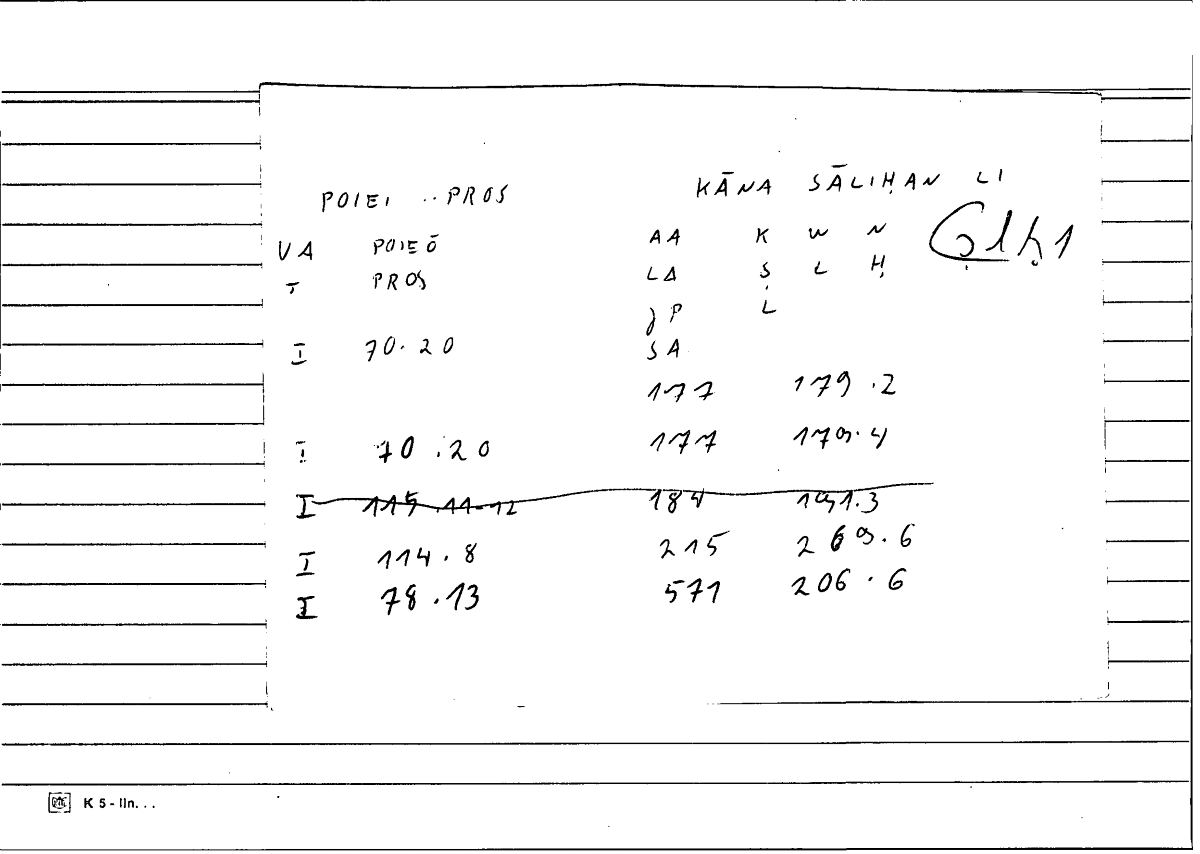 POIEI .. PROS KĀNA SĀLIḤAN LI
VA POIEŌ AA K W N ṣlḥ1
T PROS LA Ṣ L Ḥ
JP L
I 70.20 SA
177 179.2
I 70.20 177 179.4
I 115.11-12 184 191.3
I 114.8 215 269.6
I 78.13 571 206.6
K 5 - lln. . .